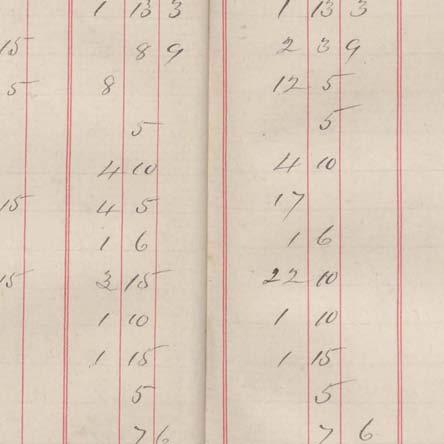 1 13 3 1 13 3
15 8 9 2 3 9
5 8 12 5
5 5
4 10 4 10
15 4 5 17
1 6 1 6
15 3 15 22 10
1 10 1 10
1 15 1 15
5 5
7 6 7 6